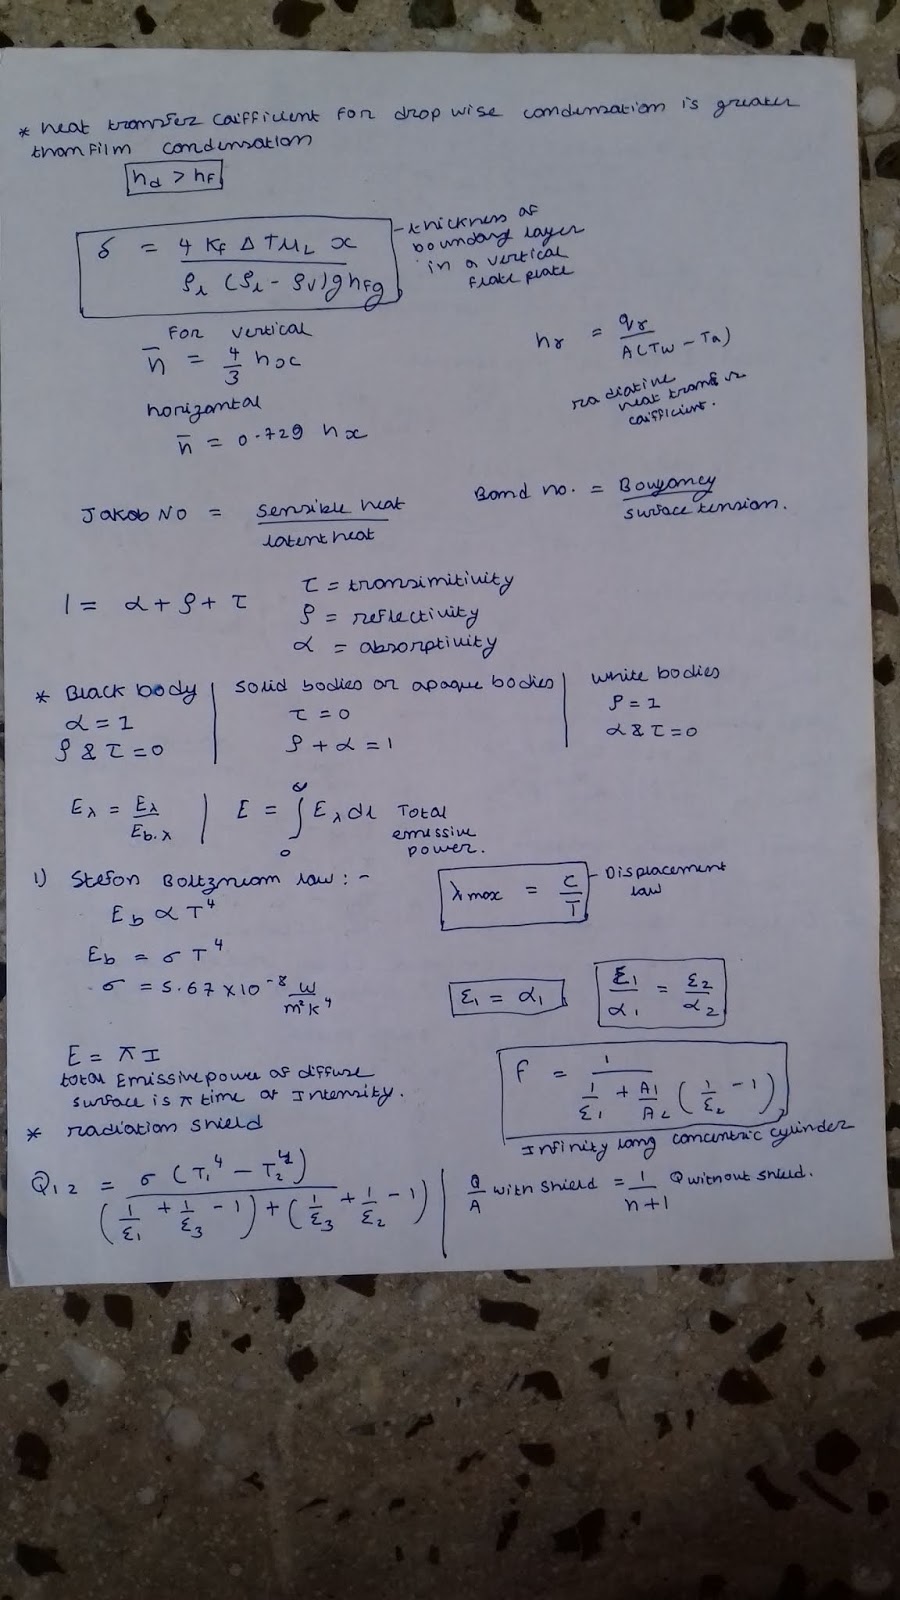 * heat transfer caifficient for drop wise condensation is greater
than film condensation
hd > hF
δ = 4 KF Δ T μL x / ρL (ρL - ρV) g hFg
- thickness of
boundary layer
in a vertical
flate plate
For vertical
h̄ = 4/3 hx
hr = qr / A(Tw - Ta)
radiative
heat transfer
caifficient.
horizontal
h̄ = 0.729 hx
Jakob No = sensible heat / latent heat
Bond no. = Bouyancy / surface tension.
1 = α + ρ + τ
τ = transimitivity
ρ = reflectivity
α = absorptivity
* Black body | solid bodies or opaque bodies | white bodies
α = 1 | τ = 0 | ρ = 1
ρ & τ = 0 | ρ + α = 1 | α & τ = 0
Eλ = Eλ / Eb.λ | E = ∫₀^∞ Eλ dλ Total
emissive
power.
1) Stefon Boltzmiam law : -
Eb α T⁴
λmax = C/T - Displacement
law
Eb = σ T⁴
σ = 5.67 × 10⁻⁸ W/m²K⁴
ε1 = α1
ε1/α1 = ε2/α2
E = π I
total Emissive power of diffuse
surface is π time of Intensity.
F = 1 / (1/ε1 + A1/A2 (1/ε2 - 1))
Infinity long concentric cylinder
* radiation shield
Q12 = σ (T1⁴ - T2⁴) / (1/ε1 + 1/ε3 - 1) + (1/ε3 + 1/ε2 - 1)
Q/A with shield = 1/n+1 Q without shield.